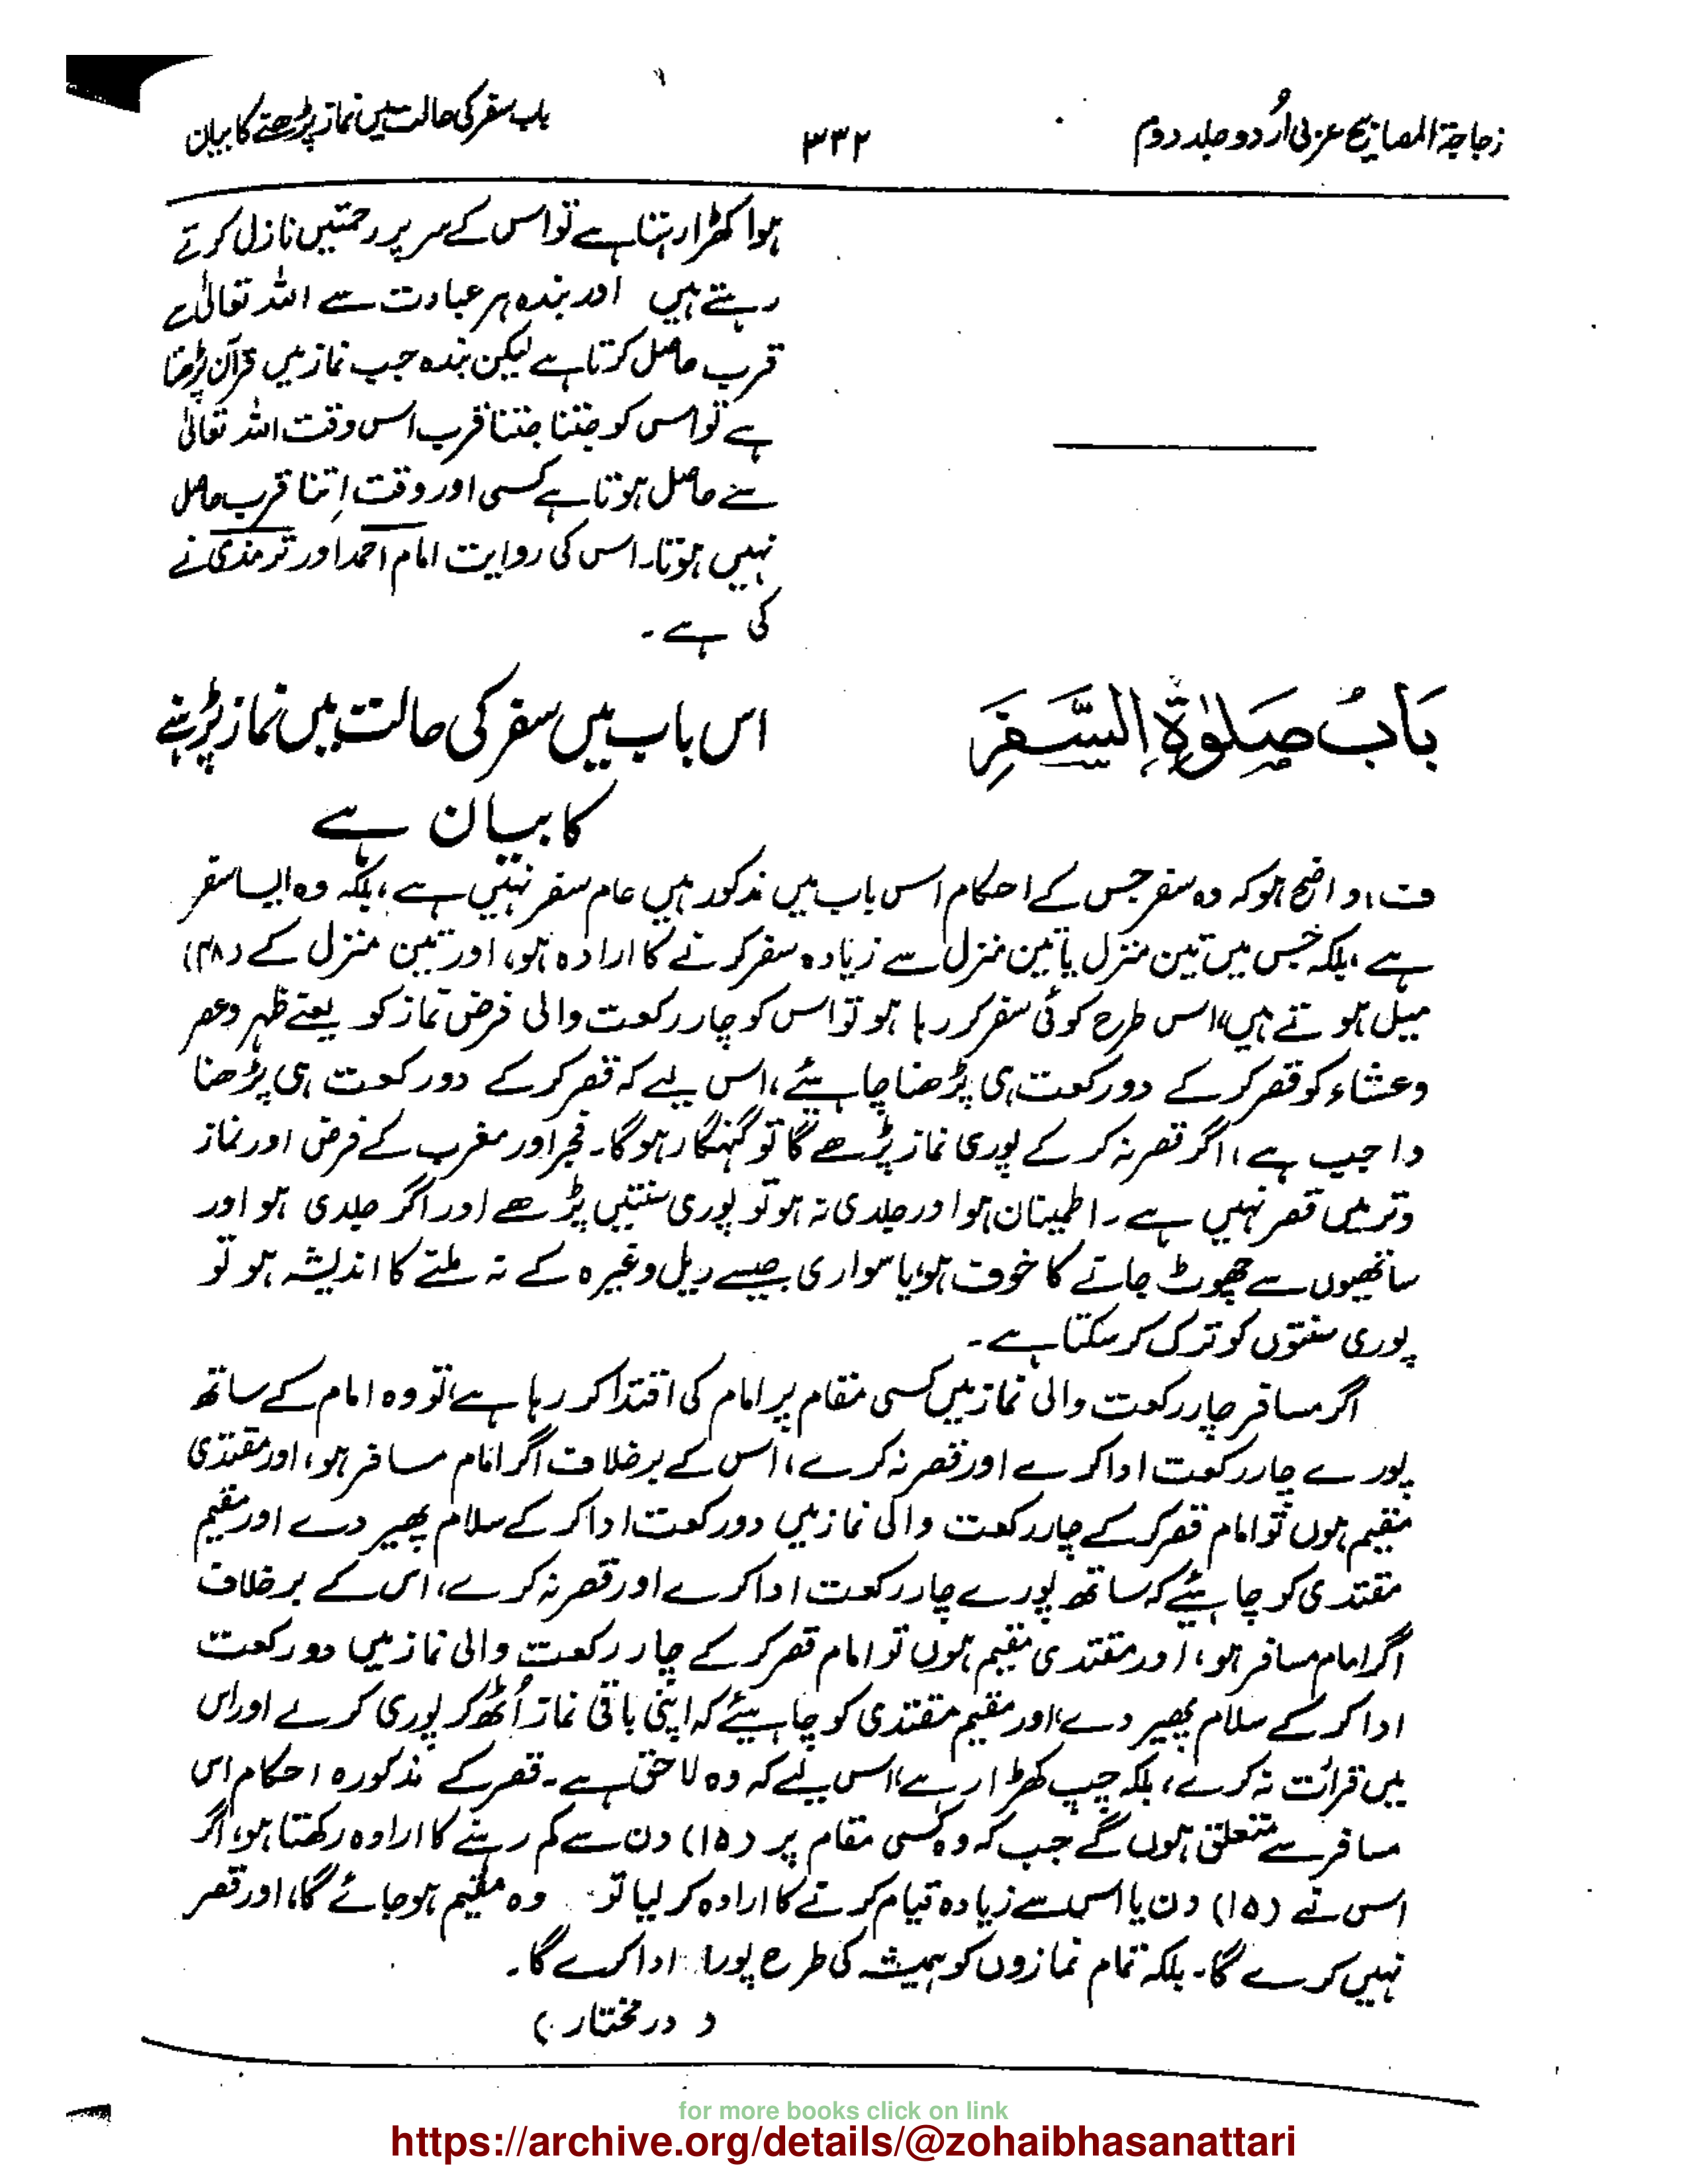 زجاجۃ المصابیح عربی اُردو جلد دوم
۳۳۲
باب سفر کی حالت میں نماز پڑھنے کا بیان
ہوا کھڑا رہتا ہے تو اس کے سر پر رحمتیں نازل کرتے
رہتے ہیں اور بندہ ہر عبادت سے اللہ تعالیٰ سے
قرب حاصل کرتا ہے لیکن بندہ جب نماز میں قرآن پڑھتا
ہے تو اس کو جتنا جتنا قرب اس وقت اللہ تعالیٰ
سے حاصل ہوتا ہے کسی اور وقت اِتنا قرب حاصل
نہیں ہوتا۔ اس کی روایت امام احمد اور ترمذی نے
کی ہے۔
بَابُ صَلٰوۃِ السَّفَرِ
اس باب میں سفر کی حالت میں نماز پڑہنے
کا بیان ہے
ف؛ واضح ہو کہ وہ سفر جس کے احکام اس باب میں مذکور ہیں عام سفر نہیں ہے، بلکہ وہ ایسا سفر
ہے، بلکہ جس میں تین منزل یا تین منزل سے زیادہ سفر کرنے کا ارادہ ہو، اور تین منزل کے (۴۸)
میل ہوتے ہیں، اس طرح کوئی سفر کر رہا ہو تو اس کو چار رکعت والی فرض نماز کو یعنے ظہر و عصر
و عشاء کو قصر کر کے دو رکعت ہی پڑھنا چاہیئے، اس لیے کہ قصر کر کے دو رکعت ہی پڑھنا
واجب ہے، اگر قصر نہ کر کے پوری نماز پڑھے گا تو گنہگار ہو گا۔ فجر اور مغرب کے فرض اور نماز
وتر میں قصر نہیں ہے۔ اطمینان ہو اور جلدی نہ ہو تو پوری سنتیں پڑھے اور اگر جلدی ہو اور
ساتھیوں سے چھوٹ جانے کا خوف ہو یا سواری جیسے ریل وغیرہ کے نہ ملنے کا اندیشہ ہو تو
پوری سنتوں کو ترک کر سکتا ہے۔
اگر مسافر چار رکعت والی نماز میں کسی مقام پر امام کی اقتدا کر رہا ہے تو وہ امام کے ساتھ
پورے چار رکعت ادا کرے اور قصر نہ کرے، اس کے برخلاف اگر امام مسافر ہو، اور مقتدی
مقیم ہوں تو امام قصر کر کے چار رکعت والی نماز میں دو رکعت ادا کر کے سلام پھیر دے اور مقیم
مقتدی کو چاہیئے کہ ساتھ پورے چار رکعت ادا کرے اور قصر نہ کرے، اس کے برخلاف
اگر امام مسافر ہو، اور مقتدی مقیم ہوں تو امام قصر کر کے چار رکعت والی نماز میں دو رکعت
ادا کر کے سلام پھیر دے، اور مقیم مقتدی کو چاہیئے کہ اپنی باقی نماز اُٹھ کر پوری کرے اور اس
میں قرائت نہ کرے، بلکہ چپ کھڑا رہے، اس لیے کہ وہ لاحق ہے۔ قصر کے مذکورہ احکام اس
مسافر سے متعلق ہوں گے جب کہ وہ کسی مقام پر (۱۵) دن سے کم رہنے کا ارادہ رکھتا ہو، اگر
اس نے (۱۵) دن یا اس سے زیادہ قیام کرنے کا ارادہ کر لیا تو وہ مقیم ہو جائے گا، اور قصر
نہیں کرے گا۔ بلکہ تمام نمازوں کو ہمیشہ کی طرح پورا ادا کرے گا۔
(درمختار)
for more books click on link
https://archive.org/details/@zohaibhasanattari